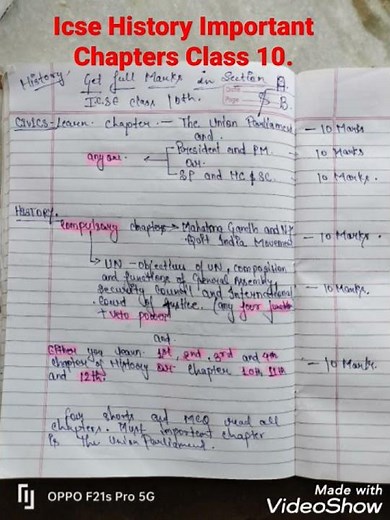 Icse History Important
Chapters Class 10.
History Get full Marks in Section A.
ICSE class 10th. & B.
Date
Page
CIVICS - Learn chapter. — The Union Parliament — 10 Marks
and
President and PM. — 10 Marks
any one. or
SP and HC & SC — 10 Marks.
HISTORY.
compulsory chapter → Mahatma Gandhi and N
Quit India Movement — 10 Marks.
UN - Objectives of UN, composition
and functions of General Assembly
Security Council and International — 10 Marks.
Court of Justice. (any four function
+ veto power)
and
Either you learn 1st, 2nd, 3rd and 4th — 10 Mark.
chapter of History or chapter 10th 11th
and 12th.
For shorts and MCQ read all
chapters. Most important chapter
is The Union Parliament.
OPPO F21s Pro 5G
Made with
VideoShow